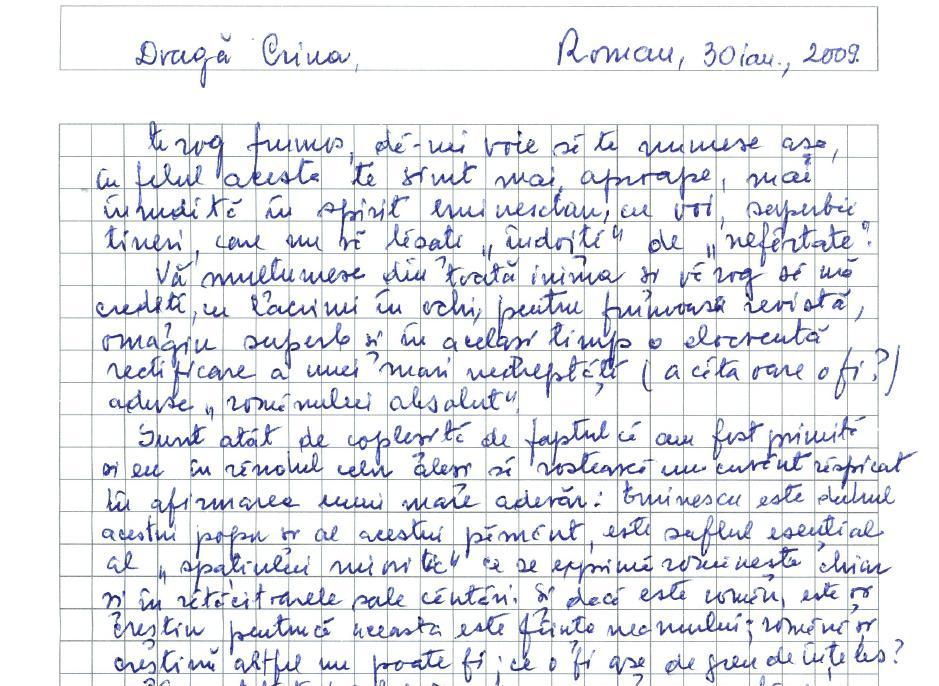 Dragă Crina, Roman, 30 ian., 2009.
te rog frumos, dă-mi voie să te numesc așa,
în felul acesta te simt mai aproape, mai
înrudită în spirit eminescian, cu voi, superbii
tineri, care nu vă lăsați „îndoiți" de „nefârtate".
Vă mulțumesc din toată inima și vă rog să mă
credeți, cu lacrimi în ochi, pentru frumoasa revistă,
omagiu superb și în același timp o elocventă
rectificare a unei mari nedreptăți (a câta oare o fi?)
aduse „românului absolut".
Sunt atât de copleșită de faptul că am fost primită
și eu în rândul celor aleși să rostească un cuvânt răspicat
în afirmarea unui mare adevăr: Eminescu este duhul
acestui popor și al acestui pământ, este sufletul esențial
al „spațiului mioritic" ce se exprimă românește chiar
și în rătăcitoarele sale cântări. Și dacă este român, este și
creștin pentru că aceasta este ființa neamului; români și
creștini altfel nu poate fi; ce o fi așa de greu de înțeles?